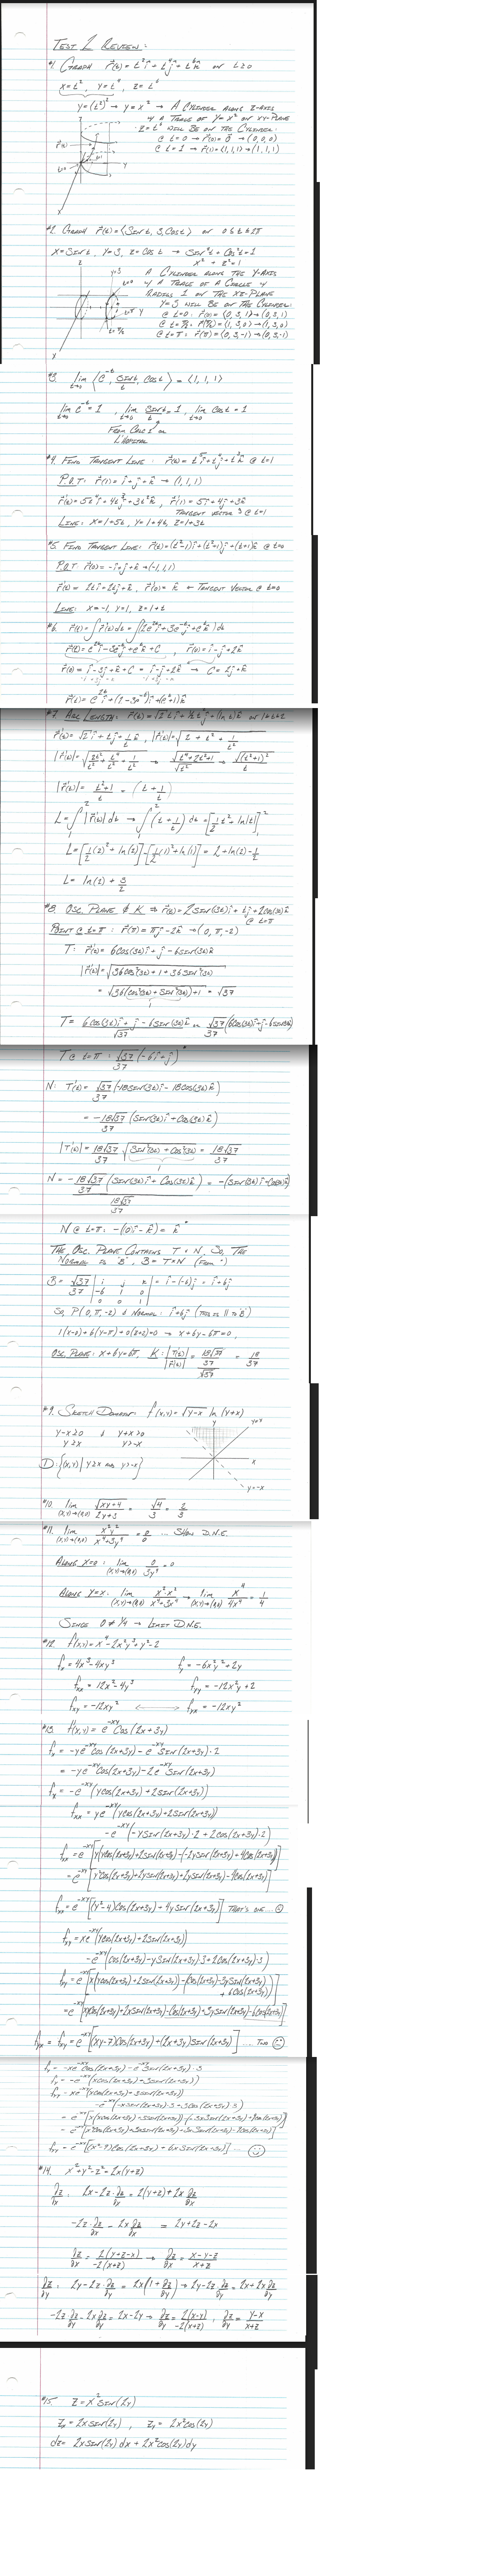 TEST 2 REVIEW:
#1. GRAPH r⃗(t) = t²î + t⁴ĵ + t⁶k̂ ON t≥0
x = t², y = t⁴, z = t⁶
y = (t²)² → y = x² → A CYLINDER ALONG Z-AXIS
w/ A TRACE OF y = x² ON XY-PLANE
z = t⁶ WILL BE ON THE CYLINDER:
@ t=0 → r⃗(0) = 0⃗ → (0,0,0)
@ t=1 → r⃗(1) = ⟨1,1,1⟩ → (1,1,1)
z
r⃗(t)
t=0
y
x
#2. GRAPH r⃗(t) = ⟨SIN t, 3, COS t⟩ ON 0≤t≤2π
x = SIN t, y = 3, z = COS t → SIN²t + COS²t = 1
x² + z² = 1
z
y=3
A CYLINDER ALONG THE Y-AXIS
w/ A TRACE OF A CIRCLE w/
RADIUS 1 ON THE XZ-PLANE
y=3 WILL BE ON THE CYLINDER:
@ t=0: r⃗(0) = ⟨0,3,1⟩ → (0,3,1)
@ t=π/2: r⃗(π/2) = ⟨1,3,0⟩ → (1,3,0)
@ t=π: r⃗(π) = ⟨0,3,-1⟩ → (0,3,-1)
t=0
t=π
y
t=π/2
x
#3. lim t→0 ⟨e^-t, SIN t/t, COS t⟩ = ⟨1,1,1⟩
lim t→0 e^-t = 1, lim t→0 SIN t/t = 1, lim t→0 COS t = 1
FROM CALC I OR
L'HOPITAL
#4. FIND TANGENT LINE: r⃗(t) = t⁵î + t⁴ĵ + t³k̂ @ t=1
P.O.T: r⃗(1) = î + ĵ + k̂ → (1,1,1)
r⃗'(t) = 5t⁴î + 4t³ĵ + 3t²k̂, r⃗'(1) = 5î + 4ĵ + 3k̂
TANGENT VECTOR @ t=1
LINE: x = 1+5t, y = 1+4t, z = 1+3t
#5. FIND TANGENT LINE: r⃗(t) = (t²-1)î + (t²+1)ĵ + (t+1)k̂ @ t=0
P.O.T r⃗(0) = -î + ĵ + k̂ → (-1,1,1)
r⃗'(t) = 2tî + 2tĵ + k̂, r⃗'(0) = k̂ ← TANGENT VECTOR @ t=0
LINE: x = -1, y = 1, z = 1+t
#6. r⃗(t) = ∫ r⃗'(t) dt = ∫ (2e^2t î + 3e^-t ĵ + e^t k̂) dt
r⃗(t) = e^2t î - 3e^-t ĵ + e^t k̂ + C, r⃗(0) = î - ĵ + 2k̂
r⃗(0) = î - 3ĵ + k̂ + C = î - ĵ + 2k̂ → C = 2ĵ + k̂
r⃗(t) = e^2t î + (2-3e^-t)ĵ + (e^t+1)k̂
#7. ARC LENGTH: r⃗(t) = √2 t î + ½t²ĵ + (ln t)k̂ ON 1≤t≤2
r⃗'(t) = √2 î + tĵ + 1/t k̂, |r⃗'(t)| = √(2 + t² + 1/t²)
|r⃗'(t)| = √(2t²/t² + t⁴/t² + 1/t²) → √(t⁴+2t²+1)/√t² → √(t²+1)²/t
|r⃗'(t)| = (t²+1)/t = (t + 1/t)
L = ∫₁² |r⃗'(t)| dt → ∫₁² (t + 1/t) dt = [½t² + ln|t|]₁²
L = [½(2)² + ln(2)] - [½(1)² + ln(1)] = 2 + ln(2) - ½
L = ln(2) + 3/2
#8. OSC. PLANE & K ⇒ r⃗(t) = 2SIN(3t)î + tĵ + 2COS(3t)k̂
@ t=π
POINT @ t=π: r⃗(π) = πĵ - 2k̂ → (0, π, -2)
T: r⃗'(t) = 6COS(3t)î + ĵ - 6SIN(3t)k̂
|r⃗'(t)| = √(36COS²(3t) + 1 + 36SIN²(3t))
= √(36(COS²(3t) + SIN²(3t)) + 1) = √37
1
T = (6COS(3t)î + ĵ - 6SIN(3t)k̂)/√37 OR √37/37 (6COS(3t)î + ĵ - 6SIN(3t)k̂)
T @ t=π: √37/37 (-6î + ĵ) *
N: T'(t) = √37/37 (-18SIN(3t)î - 18COS(3t)k̂)
= -18√37/37 (SIN(3t)î + COS(3t)k̂)
|T'(t)| = 18√37/37 √(SIN²(3t) + COS²(3t)) = 18√37/37
1
N = -18√37/37 (SIN(3t)î + COS(3t)k̂) / (18√37/37) = -(SIN(3t)î + COS(3t)k̂)
N @ t=π: -(0î - k̂) = k̂ *
THE OSC. PLANE CONTAINS T & N. SO, THE
NORMAL IS B⃗, B = T×N (FROM *)
B = √37/37 | i j k | = î - (-6)ĵ = î + 6ĵ
-6 1 0
0 0 1
SO, P(0, π, -2) & NORMAL: î + 6ĵ (THIS IS || TO B⃗)
1(x-0) + 6(y-π) + 0(z+2) = 0 → x + 6y - 6π = 0
OSC. PLANE: x + 6y = 6π. K: |T'(t)|/|r⃗'(t)| = (18√37/37)/√37 = 18/37
#9. SKETCH DOMAIN: f(x,y) = √(y-x) ln(y+x)
y-x ≥ 0 & y+x > 0
y ≥ x y > -x
D: {(x,y) | y ≥ x AND y > -x}
y
y=x
x
y=-x
#10. lim (x,y)→(0,0) √(xy+4)/(2y+3) = √4/3 = 2/3
#11. lim (x,y)→(0,0) x²y²/(x⁴+3y⁴) = 0/0 ... SHOW D.N.E.
ALONG x=0: lim (x,y)→(0,0) 0/3y⁴ = 0
ALONG y=x: lim (x,y)→(0,0) x²·x²/(x⁴+3x⁴) → lim (x,y)→(0,0) x⁴/4x⁴ = 1/4
SINCE 0 ≠ 1/4 → LIMIT D.N.E.
#12. f(x,y) = x⁴ - 2x²y³ + y² - 2
fx = 4x³ - 4xy³ fy = -6x²y² + 2y
fxx = 12x² - 4y³ fyy = -12x²y + 2
fxy = -12xy² ⟷ fyx = -12xy²
#13. f(x,y) = e^-xy COS(2x+3y)
fx = -ye^-xy COS(2x+3y) - e^-xy SIN(2x+3y)·2
= -ye^-xy COS(2x+3y) - 2e^-xy SIN(2x+3y)
fx = -e^-xy (yCOS(2x+3y) + 2SIN(2x+3y))
fxx = ye^-xy (yCOS(2x+3y) + 2SIN(2x+3y))
-e^-xy (-ySIN(2x+3y)·2 + 2COS(2x+3y)·2)
fxx = e^-xy [y(yCOS(2x+3y) + 2SIN(2x+3y)) - (-2ySIN(2x+3y) + 4COS(2x+3y))]
= e^-xy [y²COS(2x+3y) + 2ySIN(2x+3y) + 2ySIN(2x+3y) - 4COS(2x+3y)]
fxx = e^-xy [(y²-4)COS(2x+3y) + 4ySIN(2x+3y)] THAT'S ONE... ☺
fxy = xe^-xy (yCOS(2x+3y) + 2SIN(2x+3y))
-e^-xy (COS(2x+3y) - ySIN(2x+3y)·3 + 2COS(2x+3y)·3)
fxy = e^-xy [x(yCOS(2x+3y) + 2SIN(2x+3y)) - (COS(2x+3y) - 3ySIN(2x+3y)
+ 6COS(2x+3y))]
= e^-xy [xyCOS(2x+3y) + 2xSIN(2x+3y) - COS(2x+3y) + 3ySIN(2x+3y) - 6COS(2x+3y)]
fyx = fxy = e^-xy [(xy-7)COS(2x+3y) + (2x+3y)SIN(2x+3y)] ... TWO ☺
fy = -xe^-xy COS(2x+3y) - e^-xy SIN(2x+3y)·3
fy = -e^-xy (xCOS(2x+3y) + 3SIN(2x+3y))
fyy = xe^-xy (xCOS(2x+3y) + 3SIN(2x+3y))
-e^-xy (-xSIN(2x+3y)·3 + 3COS(2x+3y)·3)
= e^-xy [x(xCOS(2x+3y) + 3SIN(2x+3y)) - (-3xSIN(2x+3y) + 9COS(2x+3y))]
= e^-xy [x²COS(2x+3y) + 3xSIN(2x+3y) + 3xSIN(2x+3y) - 9COS(2x+3y)]
fyy = e^-xy [(x²-9)COS(2x+3y) + 6xSIN(2x+3y)] ... ☺
#14. x² + y² - z² = 2x(y+z)
∂z/∂x: 2x - 2z ∂z/∂x = 2(y+z) + 2x ∂z/∂x
-2z ∂z/∂x - 2x ∂z/∂x = 2y + 2z - 2x
∂z/∂x = 2(y+z-x)/-2(x+z) → ∂z/∂x = (x-y-z)/(x+z)
∂z/∂y: 2y - 2z ∂z/∂y = 2x(1 + ∂z/∂y) → 2y - 2z ∂z/∂y = 2x + 2x ∂z/∂y
-2z ∂z/∂y - 2x ∂z/∂y = 2x - 2y → ∂z/∂y = 2(x-y)/-2(x+z), ∂z/∂y = (y-x)/(x+z)
#15. z = x² SIN(2y)
zx = 2xSIN(2y), zy = 2x²COS(2y)
dz = 2xSIN(2y)dx + 2x²COS(2y)dy